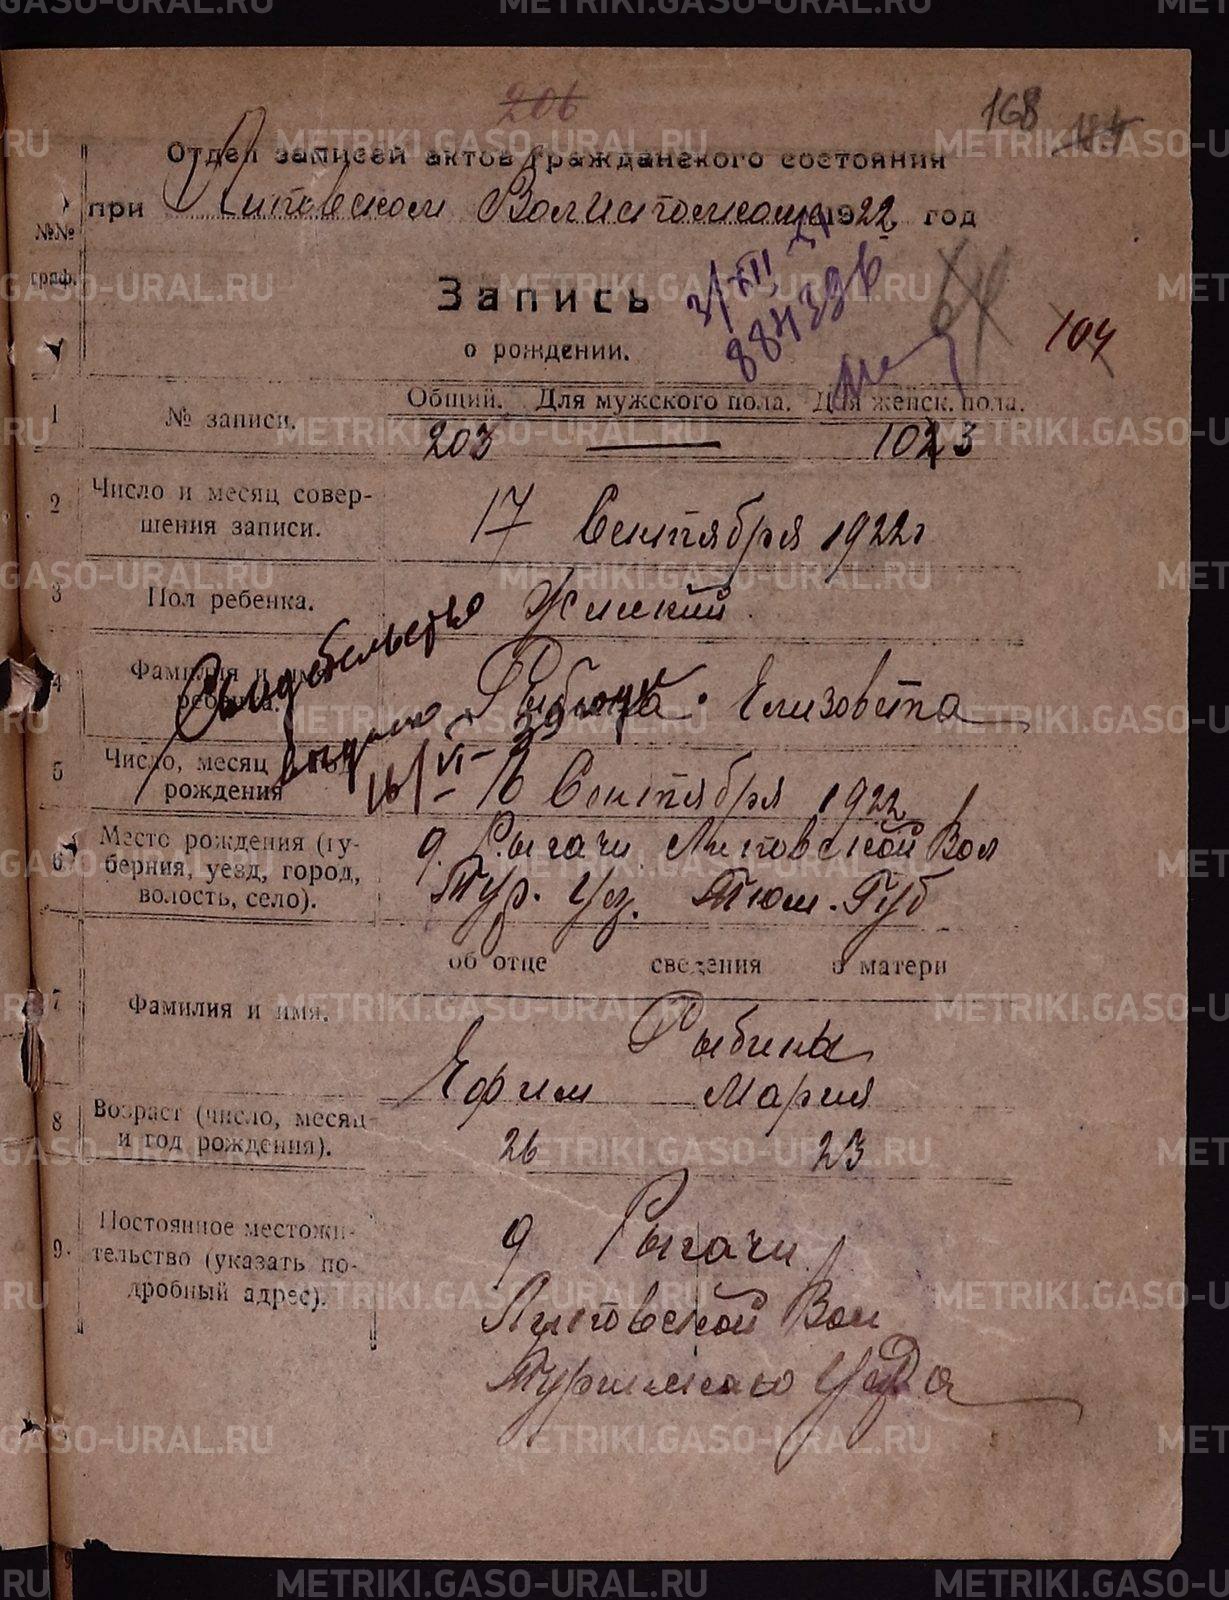 206
168
Отдел записей актов гражданского состояния
при Липовском Волисполкоме 1922 год
№№ граф.
Запись
о рождении.
31/XII
884336
104
1 № записи. Общий. Для мужского пола. Для женск. пола.
203 — 1023
2 Число и месяц совершения записи. 17 Сентября 1922 г
3 Пол ребенка. Женский
4 Фамилия и имя ребенка. Рыбина Елизовета
Свидетельство
выдано
16/VI-39
5 Число, месяц и год рождения 16 Сентября 1922
6 Место рождения (гу-
берния, уезд, город,
волость, село).
д. Рычгачи Липовской Вол
Тур. Уез. Тюм. Губ
об отце сведения о матери
7 Фамилия и имя.
Рыбины
Ефим Мария
8 Возраст (число, месяц
и год рождения).
26 23
9. Постоянное местожи-
тельство (указать по-
дробный адрес).
д Рычгачи
Липовской Вол
Туринского Уезда
METRIKI.GASO-URAL.RU